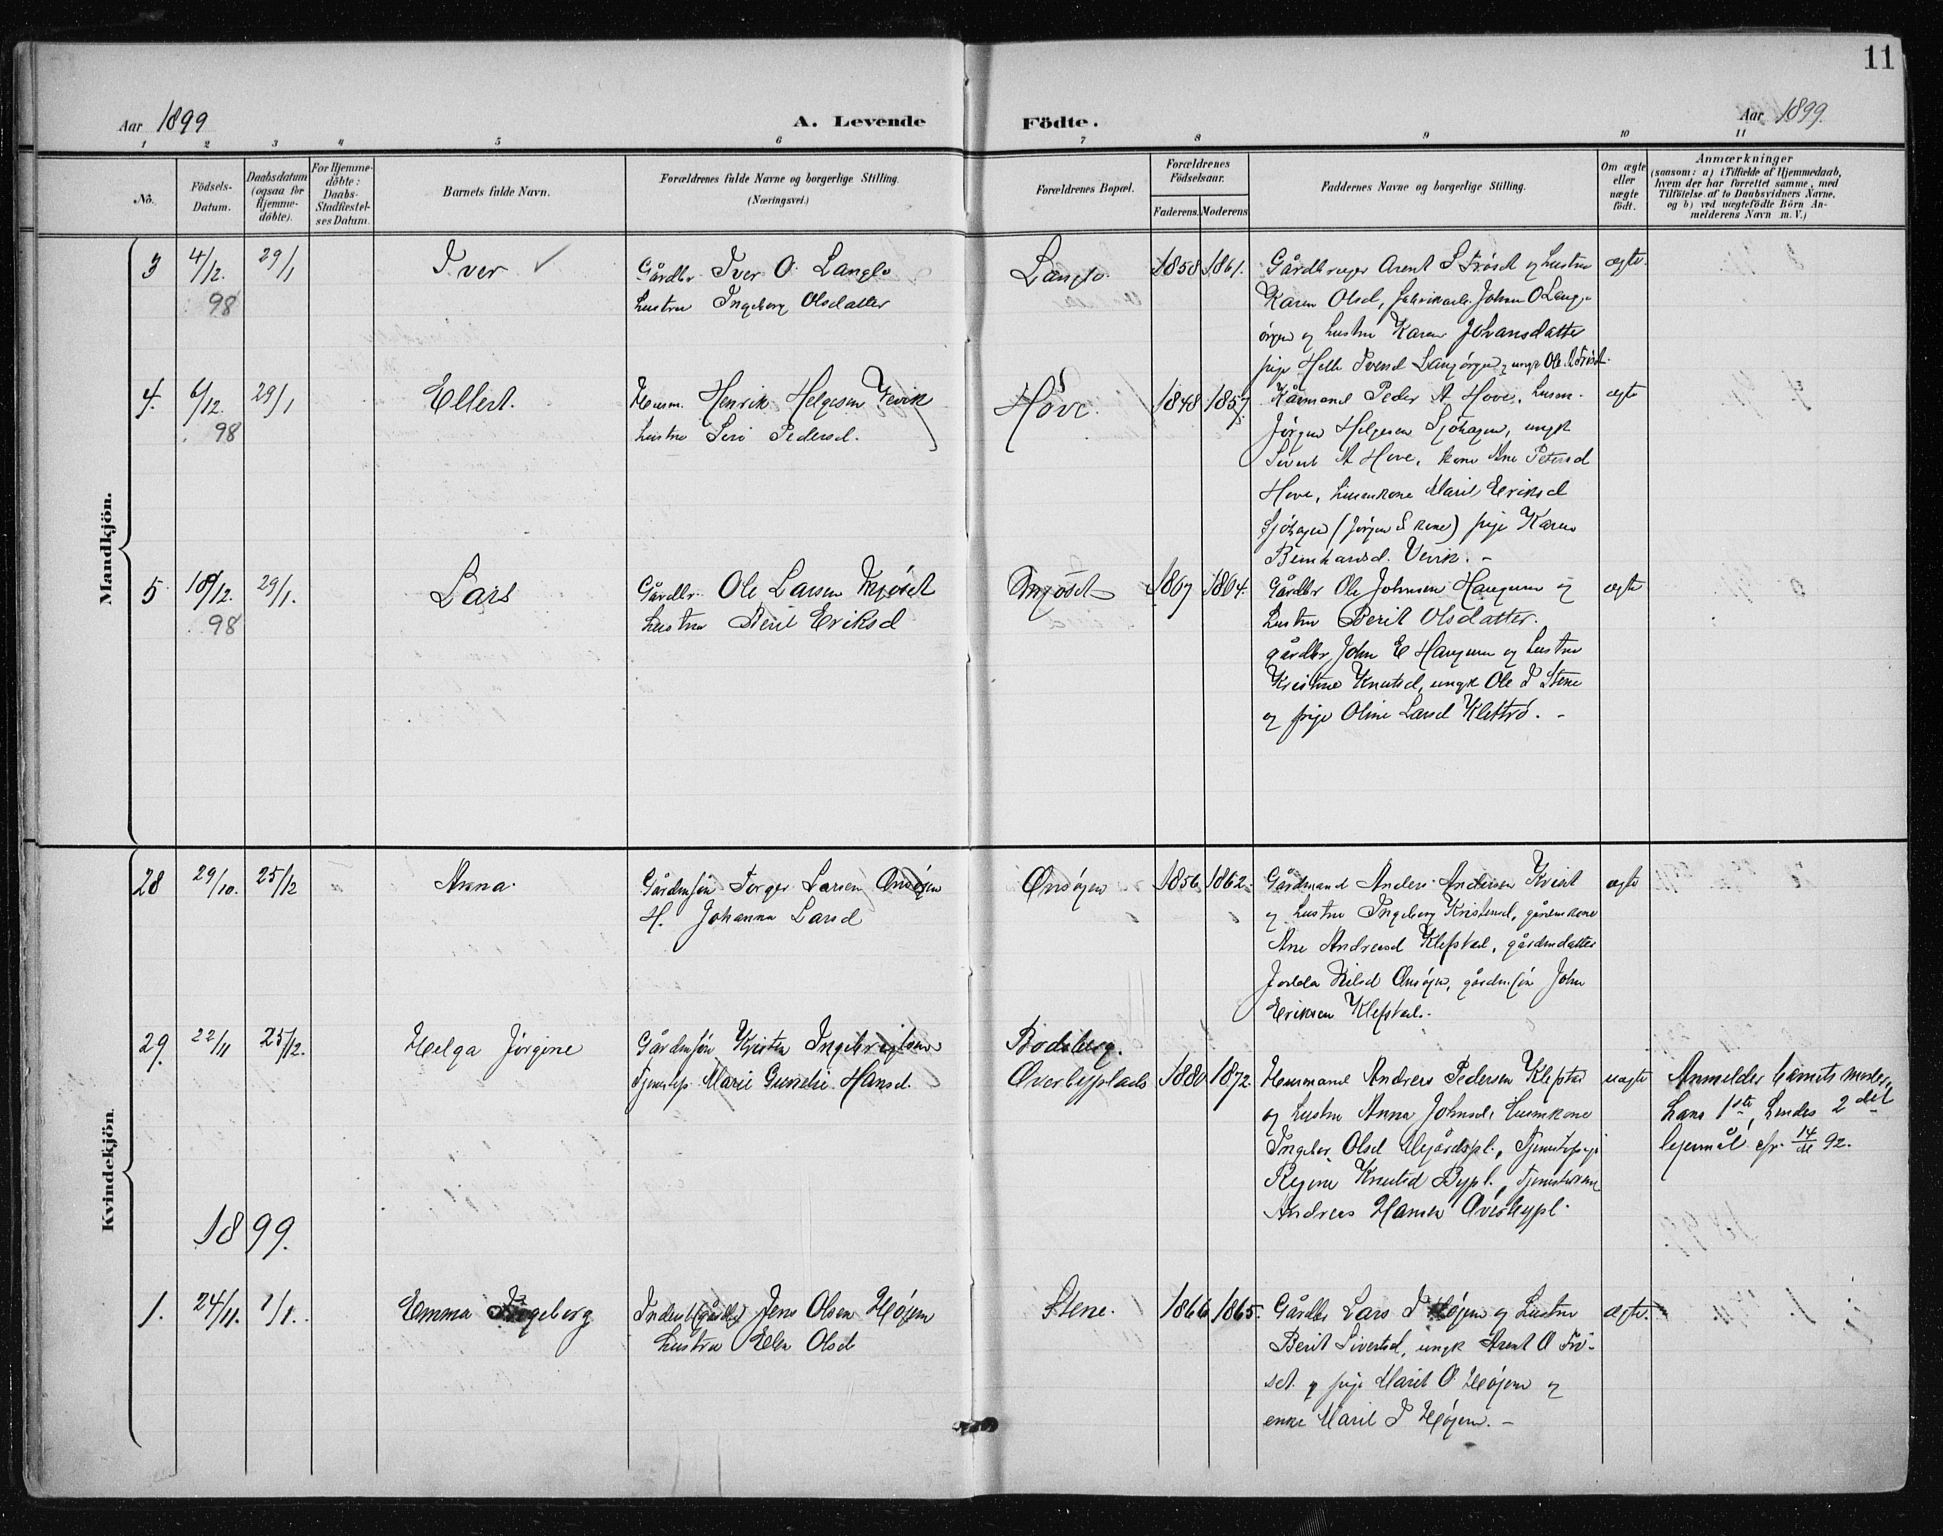 11
Aar 1899
A. Levende
Födte.
Aar 1899.
1 2 3 4 5 6 7 8 9 10 11
No.
Födsels-
Datum.
Daabsdatum
(ogsaa for
Hjemme-
döbte).
For Hjemme-
döbte:
Daabs-
Stadfæstel-
ses Datum.
Barnets fulde Navn.
Forældrenes fulde Navne og borgerlige Stilling.
(Næringsvei.)
Forældrenes Bopæl.
Forældrenes
Födselsaar.
Faderens. Moderens.
Faddernes Navne og borgerlige Stilling.
Om ægte
eller
uægte
födt.
Anmærkninger
(saasom: a) i Tilfælde af Hjemmedaab,
hvem der har forrettet samme, med
Tilföielse af to Daabsvidners Navne,
og b) ved uægtefödte Börn An-
melderens Navn m. V.)
Mandkjön.
3 4/12. 98 29/1 Iver ✓
Gårdbr. Iver O. Langlo
hustru Ingeborg Olsdatter
Langlo. 1858 1861.
Gårdbruger Arent S Frøset og hustru
Karen Olsd, fabrikarb. Johan O Lang-
ørgen og hustru Karen Johansdatter
pige Iversd Langørgen, ungk Ole
ægte.
4. 6/12. 98 29/1 Ellert.
Husm. Henrik Helgesen
hustru Seri Pedersd.
Hove. 1848 1857.
Kårmand Peder A Hove, husm.
Jørgen Helgesen Sjøhagen, ungk
Sivert A Hove, kone Ane Petersd
Hove, husmkone Marit Eriksd
Sjøhagen (Jørgen S kone) pige Karen
ægte
5 18/12. 98 29/1. Lars
Gårdbr. Ole Larsen Mjøset
hustru Berit Eriksd
Mjøset 1867 1864.
Gårdbr Ole Johnsen Haugum og
hustru Berit Olsdatter.
gårdbr John E Haugum og hustru
Kristine Knutsd, ungk Ole I Stene
og pige Oline Larsd Klettrø. -
ægte
Kvindekjön.
28 29/10. 25/12 " Anna.
Gårdmsøn Torger Larsen Ønsøyen
H. Johanna Larsd
Ønsøyen 1856 1862.
Gårdmand Anders Andersen Kvist
og hustru Ingeborg Kristensd, gårdmkone
Ane Andreasd Klefstad, gårdmdatter
Nilsd Ønsøyn, gårdmsøn John
Eriksen Klefstad.
ægte
29. 22/11 25/12. Helga Jørgine
Gårdmsøn Kristen Ingebrigtsen
Tjenestep. Marie Gurine Hansd.
Bodsberg.
Øverbyplads 1880 1872.
Husmand Andreas Pedersen Klefstad
og hustru Anna Johnsd, husmkone
Ingebor Olsd
Regine Knutsd Bypl.
Andreas Hansen Øverbypl.
uægte
Anmelder barnets moder,
hans 1ste, hendes 2det
lejermål cfr. 14/11 92.
1899.
1. 24/11. 1/1. Emma Ingeborg
Inderst (gårdbr) Jens Olsen Høyem
hustru Elen Olsd
Stene. 1866 1865.
Gårdbr Lars I Høyem og hustru
Berit Sivertsd, ungk Arent O Frø-
set og pige Marit O Høyem og
enke Marit I Høyem. -
ægte.